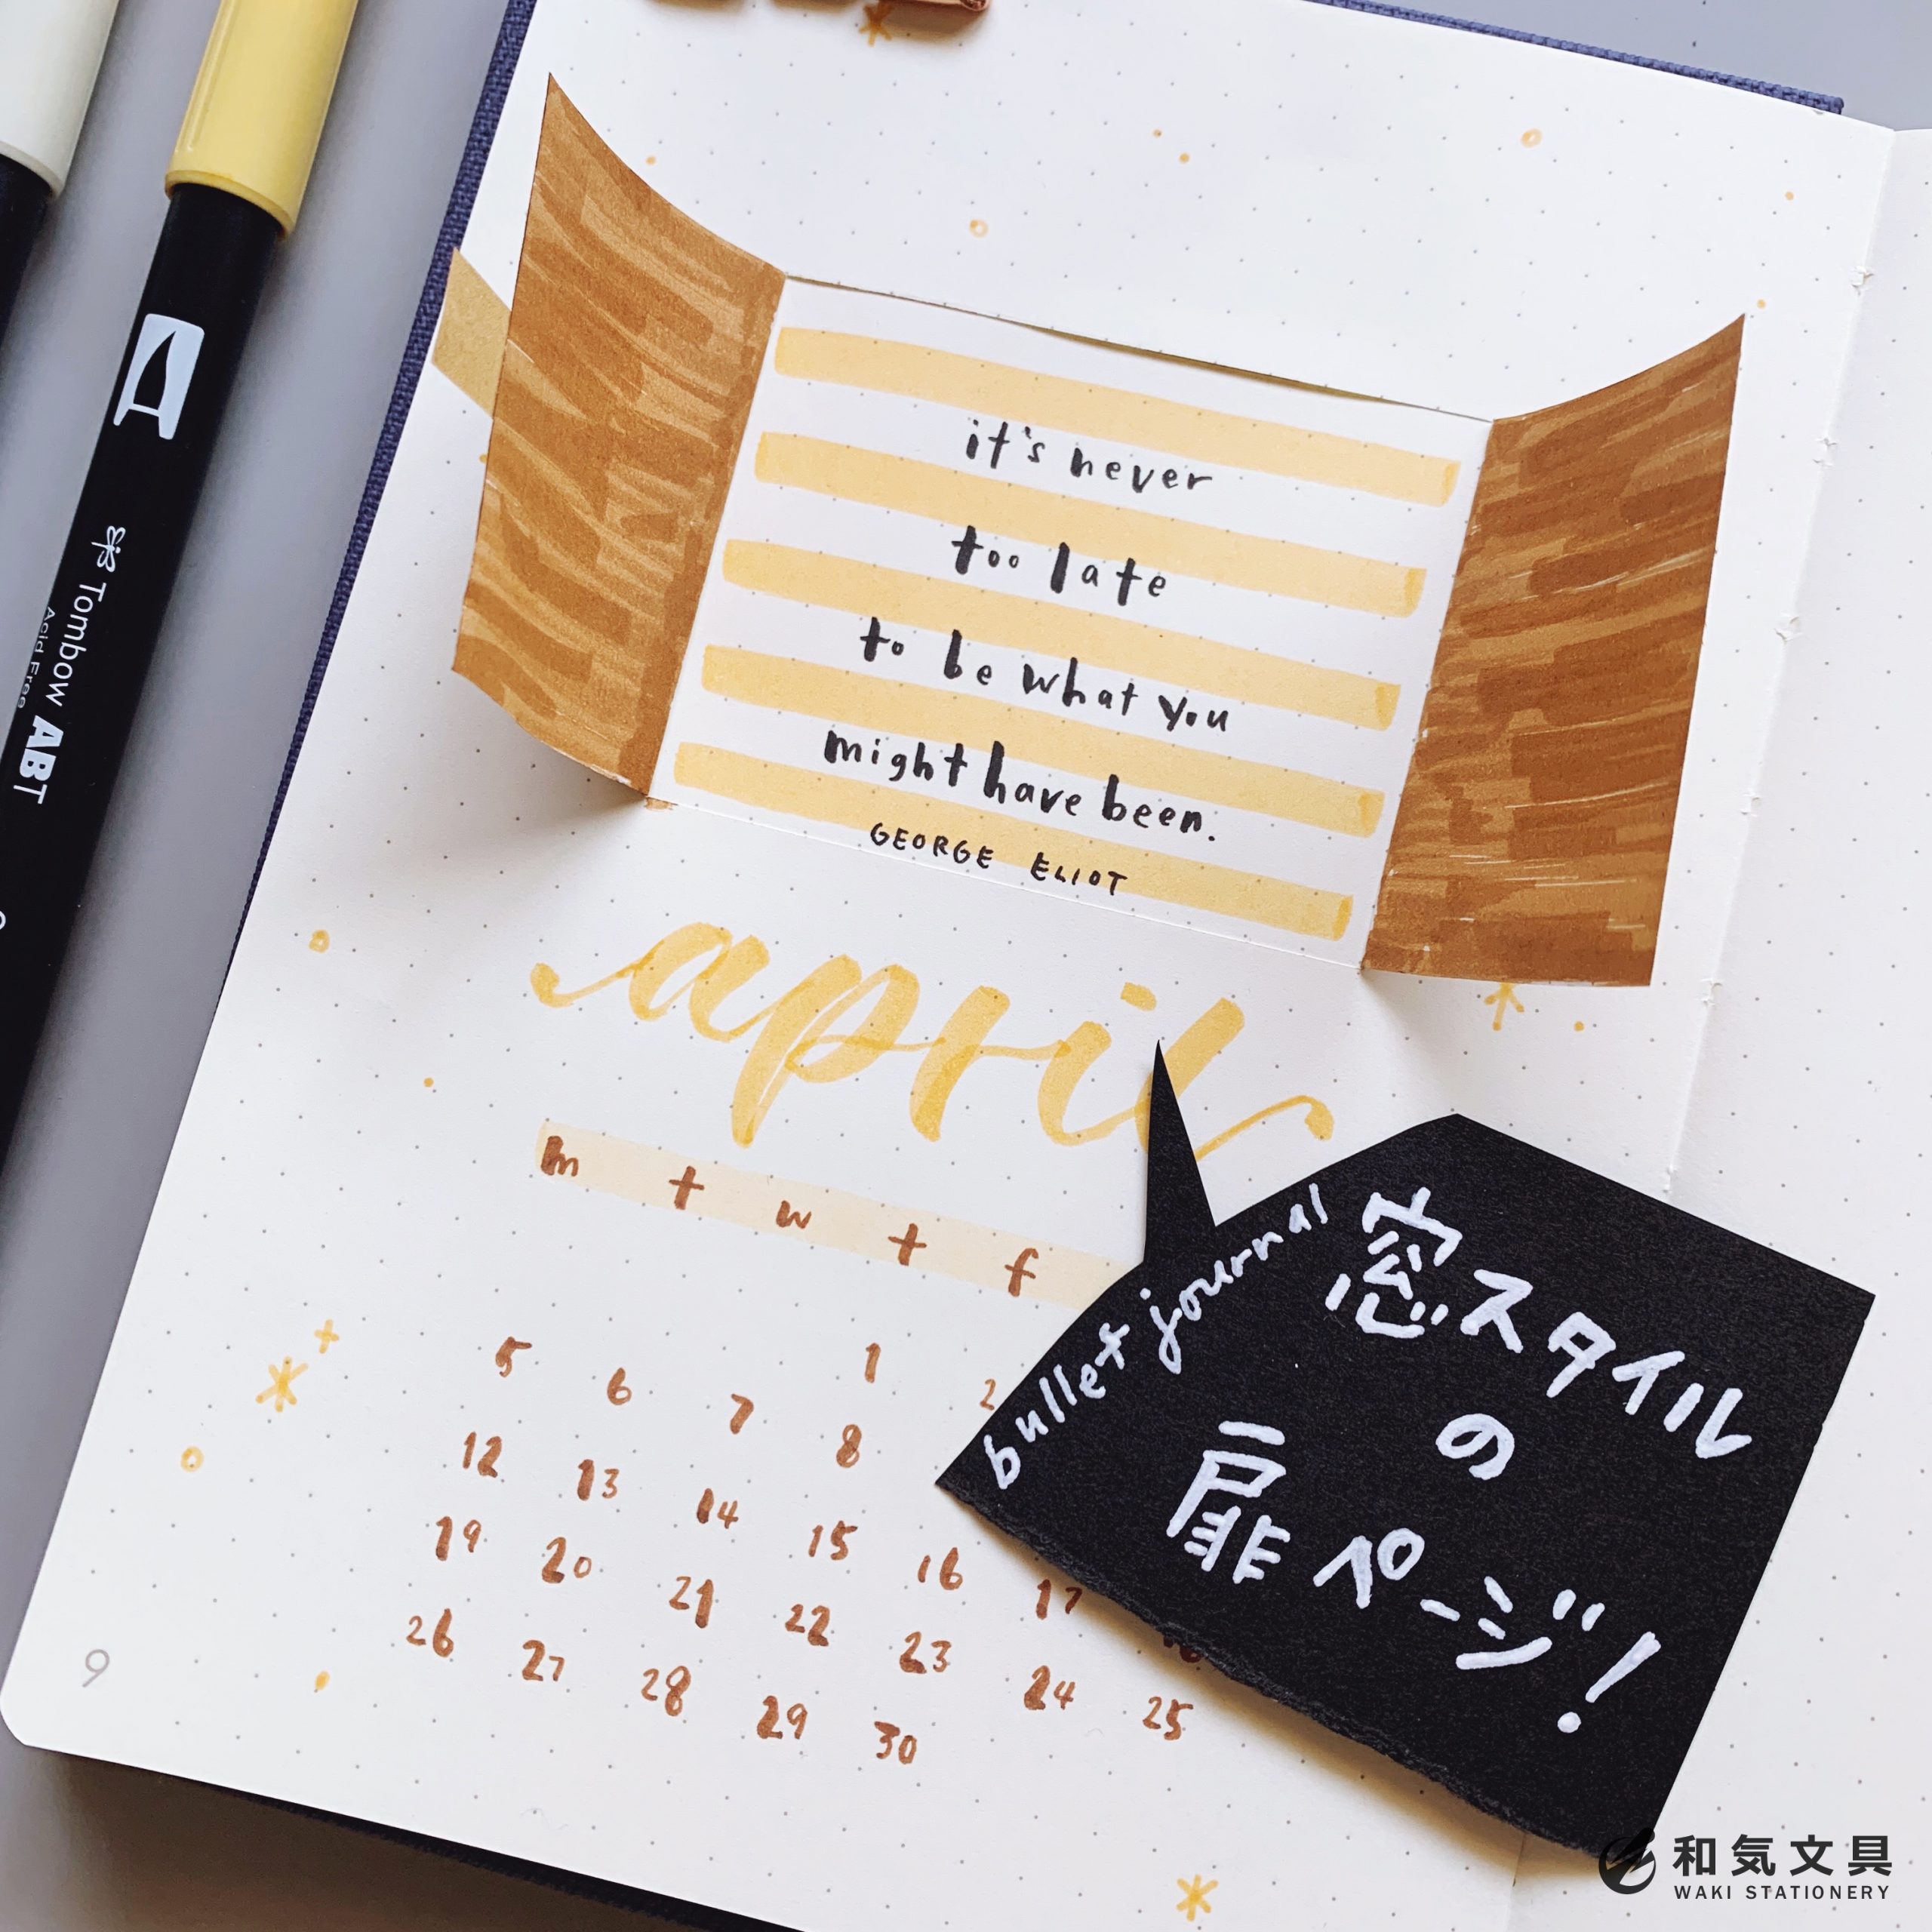 it's never
too late
to be what you
might have been.
GEORGE ELIOT
april
m t w t f
1 2
5 6 7 8
12 13 14 15 16 17
19 20 21 22 23 24 25
26 27 28 29 30
9
bullet journal
窓スタイル
の
扉ページ!
Tombow ABT
Acid Free
和気文具
WAKI STATIONERY